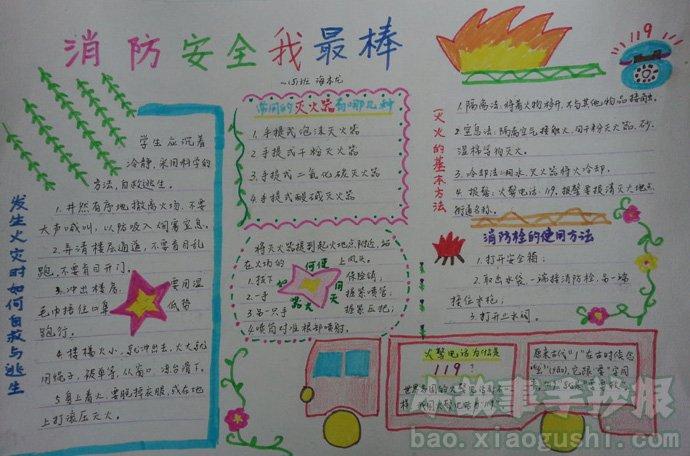 消防安全我最棒
119
发生火灾时如何自救与逃生
学生应沉着
冷静,采用科学的
方法,自救逃生。
1.井然有序地撤离火场,不要
大声喊叫,以防吸入烟雾窒息。
2.弄清楼层通道,不要盲目乱
跑,不要盲目开门。
3.冲出楼房,要用湿
毛巾捂住口鼻低势
跑行。
4.楼梯火小,就冲出去,火大就
用绳子,被单等,从窗口,阳台滑下。
5.身上着火,要脱掉衣服,或在地
上打滚压灭火。
常用的灭火器有哪几种
1.手提式泡沫灭火器
2.手提式干粉灭火器
3.手提式二氧化碳灭火器
4.手提式酸碱灭火器
将灭火器提到起火地点附近,站
在火场的上风头。
如何使用灭火器
1.按下保险销;
2.一手握紧喷管;
3.另一只手捏紧压把;
4.喷筒对准根部喷射。
灭火的基本方法
1.隔离法:将着火物移开,不与其他物品接触。
2.窒息法:隔离空气接触火,用干粉灭火器、砂、
湿棉等物灭火。
3.冷却法:用水,灭火器将火冷却。
4.报警:火警电话:119,报警要报清灭火地点,
街道名称。
消防栓的使用方法
1.打开安全箱;
2.取出水袋,一端接消防栓,另一端
接住水枪;
3.打开上水阀。
火警电话为什么是
119?
世界各国的火警电话
原来古代"1"在古时候念
小故事手抄报
bao.xiaogushi.com